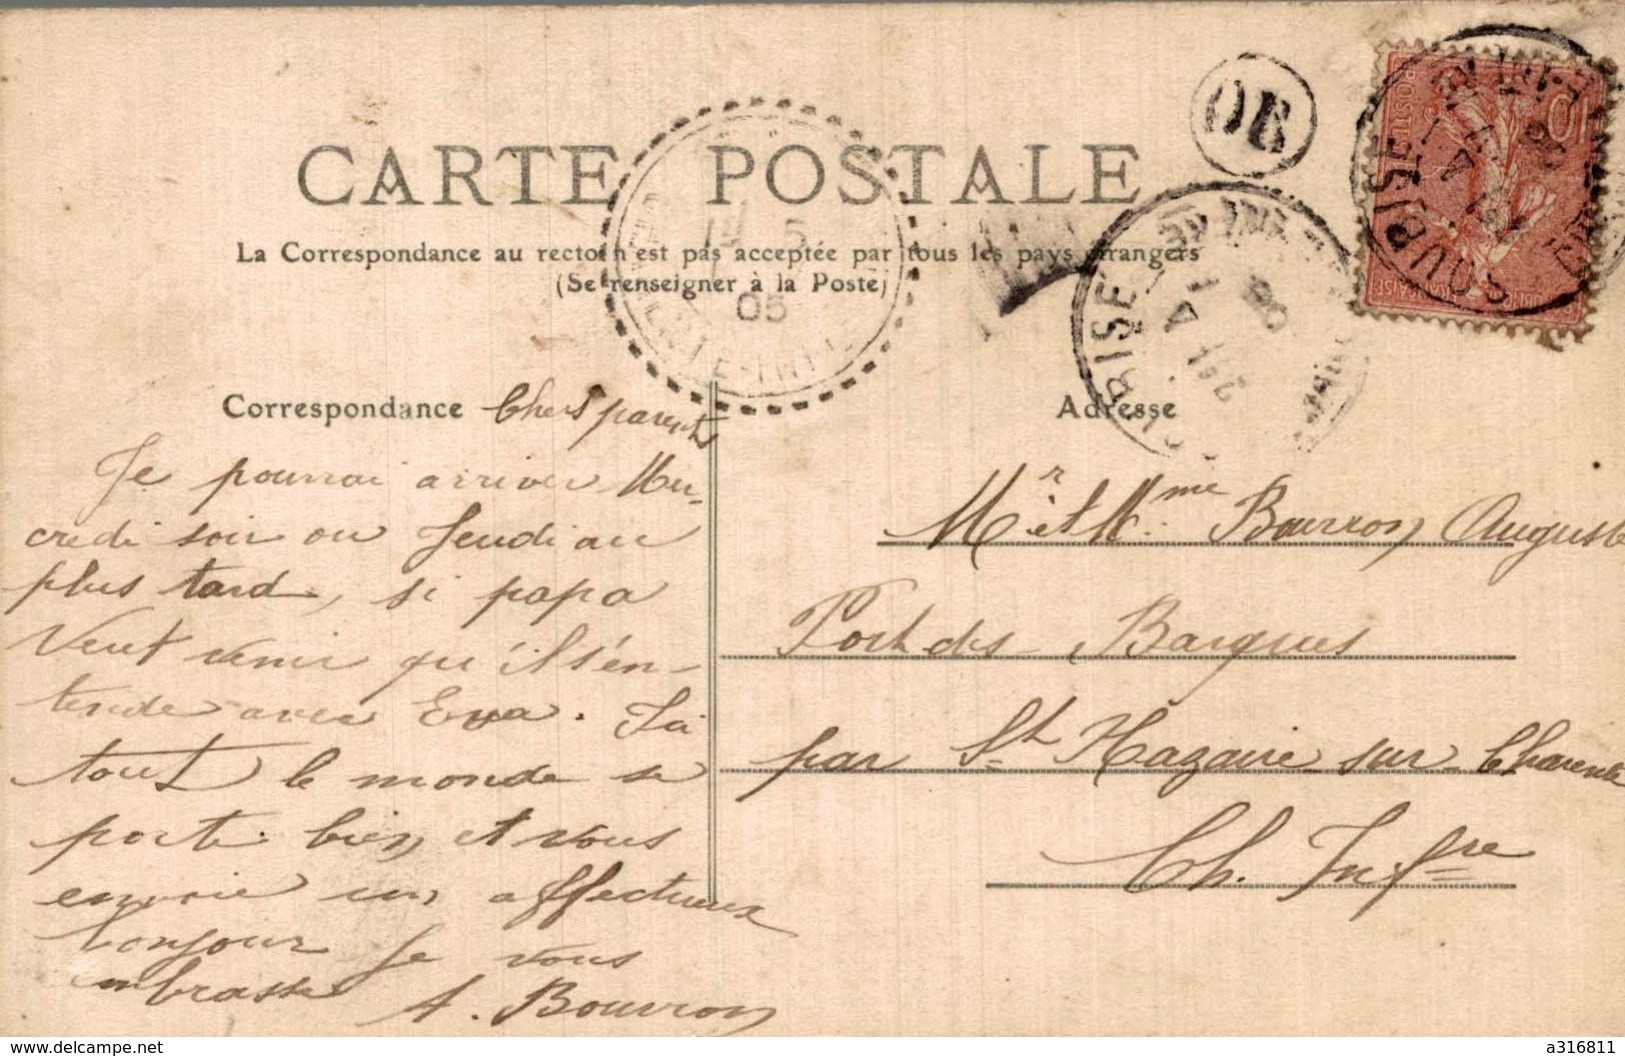 CARTE POSTALE
La Correspondance au recto n'est pas acceptée par tous les pays étrangers
(Se renseigner à la Poste)
OB
05
SOUBISE
Correspondance
Adresse
Chers parents
Je pourrai arriver Mer-
credi soir ou Jeudi au
plus tard, si papa
veut venir qu'il s'en-
tende avec Eva.
tout le monde se
porte bien et vous
envoie un affectueux
bonjour Je vous
embrasse A. Bourron
Mr et Mme Bourron Auguste
Port des Barques
par St Nazaire sur Charente
Ch. Infre
www.delcampe.net
a316811